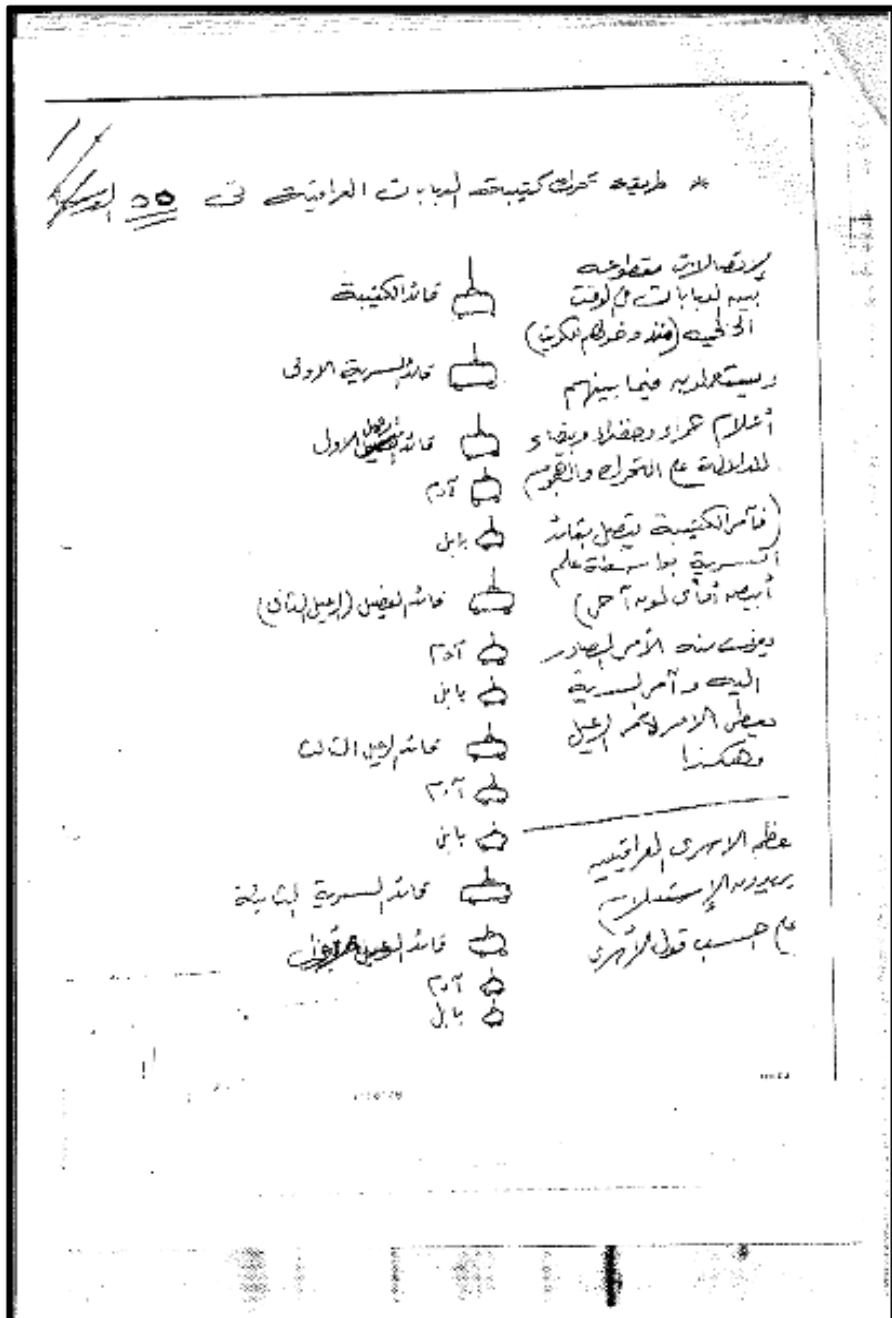 * طريقة تحرك كتيبة الدبابات العراقية في 55
الإتصالات مقطوعه
بين الدبابات في الوقت
الحالي (منذ دخولهم الكويت)
ويستعملون فيما بينهم
أعلام حمراء وخضراء وبيضاء
للدلالة على التحرك والهجوم
(فآمر الكتيبة يتصل بقائد
السرية بواسطة علم
أبيض أو أي لون آخر)
يعرف منه الأمر الصادر
اليه و آمر السرية
يعطي الامر الرعيل
وهكذا
الاسرى العراقيين
يريدون الإستسلام
على حسب قول الأسرى
قائد الكتيبة
قائد السرية الاولى
قائد الرعيل الاول
آدم
بابل
قائد الفصيل (الرعيل الثاني)
آدم
بابل
قائد الرعيل الثالث
آدم
بابل
قائد السرية الثانية
قائد
آدم
بابل